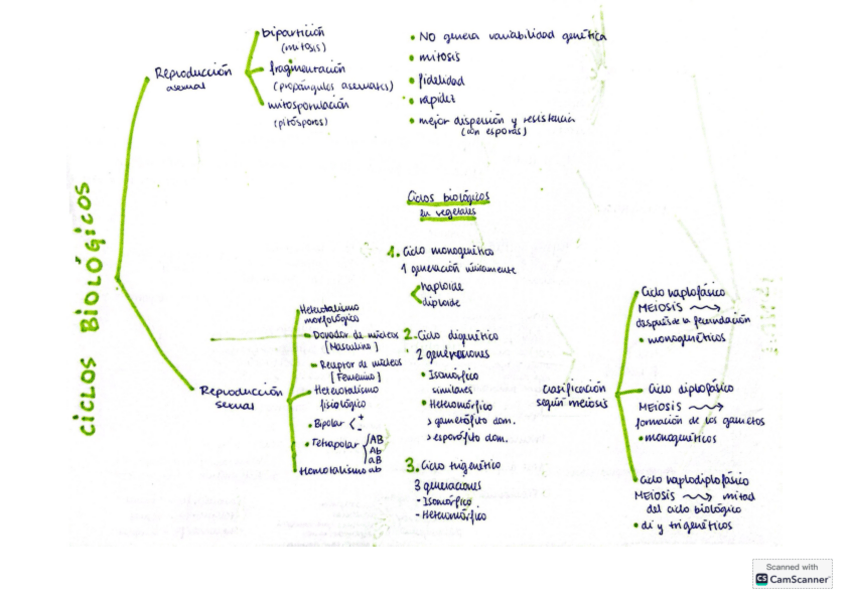 CICLOS BIOLÓGICOS
Reproducción
asexual
bipartición
(mitosis)
fragmentación
(propángulos asexuales)
mitosporulación
(mitósporas)
• NO genera variabilidad genética
• mitosis
• fidelidad
• rapidez
• mejor dispersión y resistencia
(con esporas)
Reproducción
sexual
Heterotalismo
morfológico
- Donador de núcleos
[Masculino]
- Receptor de núcleos
[Femenino]
- Heterotalismo
fisiológico
• Bipolar < + -
• Tetrapolar { AB
Ab
aB
ab
Homotalismo
Ciclos biológicos
en vegetales
1. Ciclo monogenético
1 generación únicamente
haploide
diploide
2. Ciclo digenético
2 generaciones
• Isomórfico
similares
• Heteromórfico
> gametófito dom.
> esporófito dom.
3. Ciclo trigenético
3 generaciones
- Isomórfico
- Heteromórfico
Clasificación
según meiosis
Ciclo haplofásico
MEIOSIS
después de la fecundación
• monogenéticos
Ciclo diplofásico
MEIOSIS
formación de los gametos
• monogenéticos
Ciclo haplodiplofásico
MEIOSIS mitad
del ciclo biológico
• di y trigenéticos
Scanned with
CS CamScanner